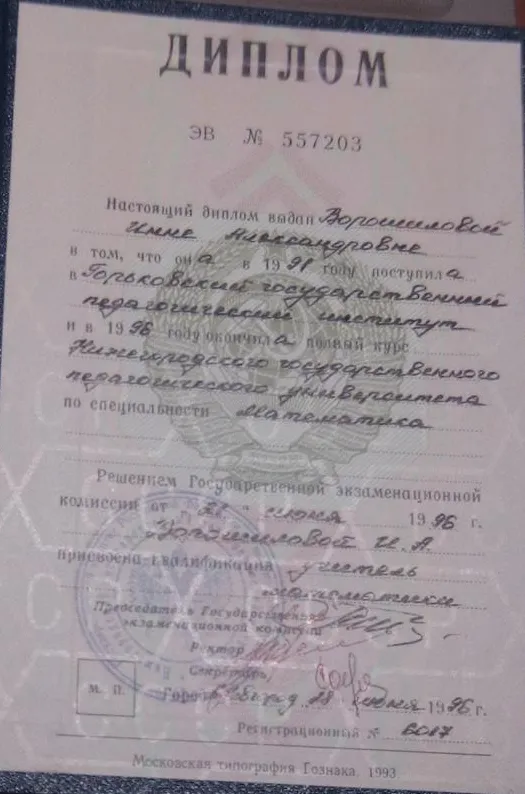 ДИПЛОМ
ЭВ № 557203
Настоящий диплом выдан Ворошиловой
Инне Александровне
в том, что она в 1991 году поступила
в Горьковский государственный
педагогический институт
и в 1996 году окончила полный курс
Нижегородского государственного
педагогического университета
по специальности Математика
Решением Государственной экзаменационной
комиссии от " июня 1996 г.
Ворошиловой И.А.
присвоена квалификация учитель
математики
Председатель Государственной
экзаменационной комиссии
Ректор
Секретарь
М. П.
Город 28 июня 1996 г.
Регистрационный № 6017
Московская типография Гознака. 1993